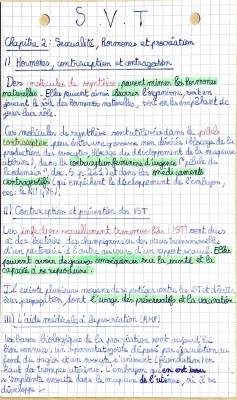 S.V.T
Chapitre 2 : Sexualité, Hormones et procréation
I) Hormones, contraception et contragestion
Des molécules de synthèse peuvent mimer les hormones
naturelles. Elles peuvent ainsi leurrer l'organisme, soit en
jouant le rôle des hormones naturelles, soit en les empêchant de
jouer leur rôle.
Ces molécules de synthèse sont utilisées dans la pilule
contraceptive pour leurs
production des ovocytes, blocage du développement de la muqueuse
utérine), dans la contraception féminine d'urgence ("pilule du
lendemain" doc. 5 p 223) et dans les médicaments
contragestifs (qui empêchent le développement de l'embryon,
II) Contraception et prévention des IST
Les infections sexuellement transmissibles (IST) sont dues
à des bactéries, des champignons ou des virus transmissibles
d'un partenaire à l'autre au cours d'un rapport sexuel. Elles
peuvent avoir de graves conséquences sur la santé et la
capacité à se reproduire.
Il existe plusieurs moyens de se protéger contre les IST et d'éviter
leur propagation, dont l'usage des préservatifs et la vaccination.
III) L'aide médicale à la procréation (AMP)
Les bases biologiques de la procréation sont aujourd'hui
bien connues : un spermatozoïde déposé par éjaculation au
fond du vagin et un ovocyte s'unissent (fécondation) en
haut des trompes utérines. L'embryon, qui en est issu
s'implante ensuite dans la muqueuse de l'utérus, où il se
développe.